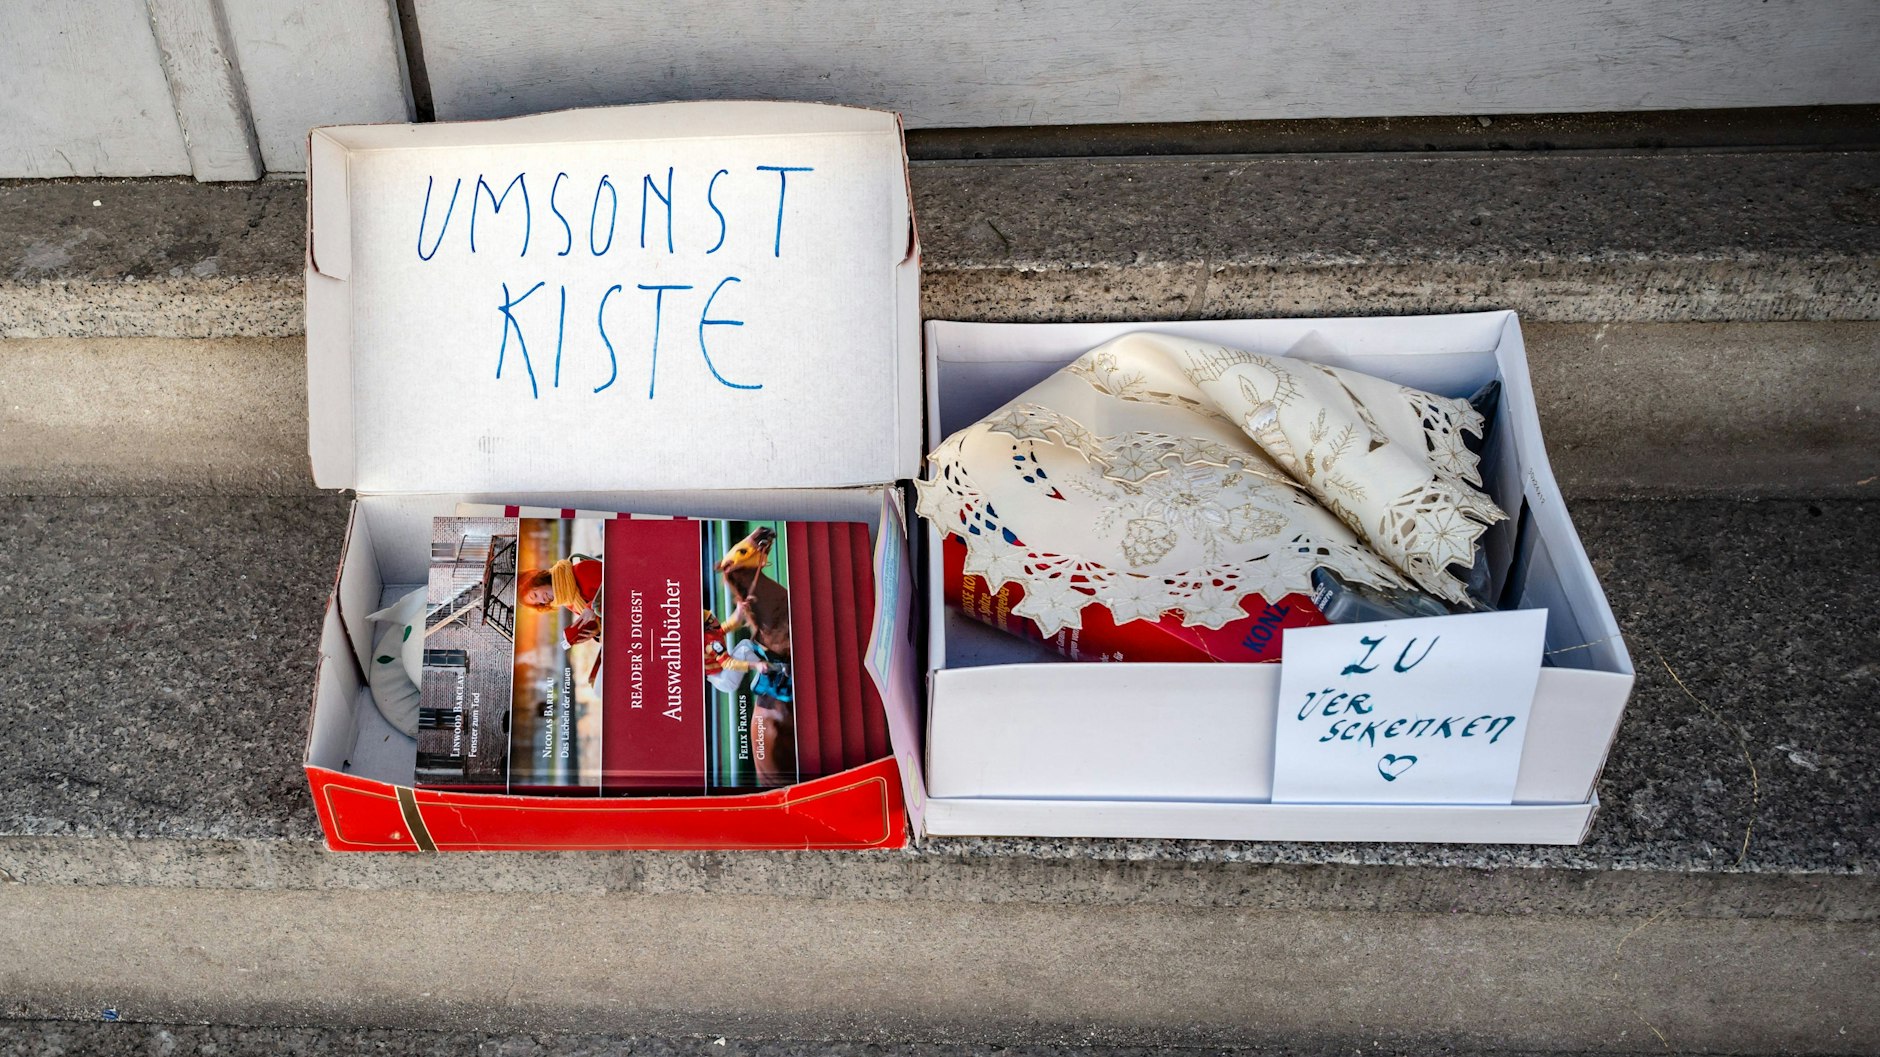 UMSONST
KISTE
LINWOOD BARCLAY
Fenster zum Tod
NICOLAS BARREAU
Das Lächeln der Frauen
READER'S DIGEST
Auswahlbücher
FELIX FRANCIS
Glücksspiel
KONZ
ZU
VER
SCHENKEN